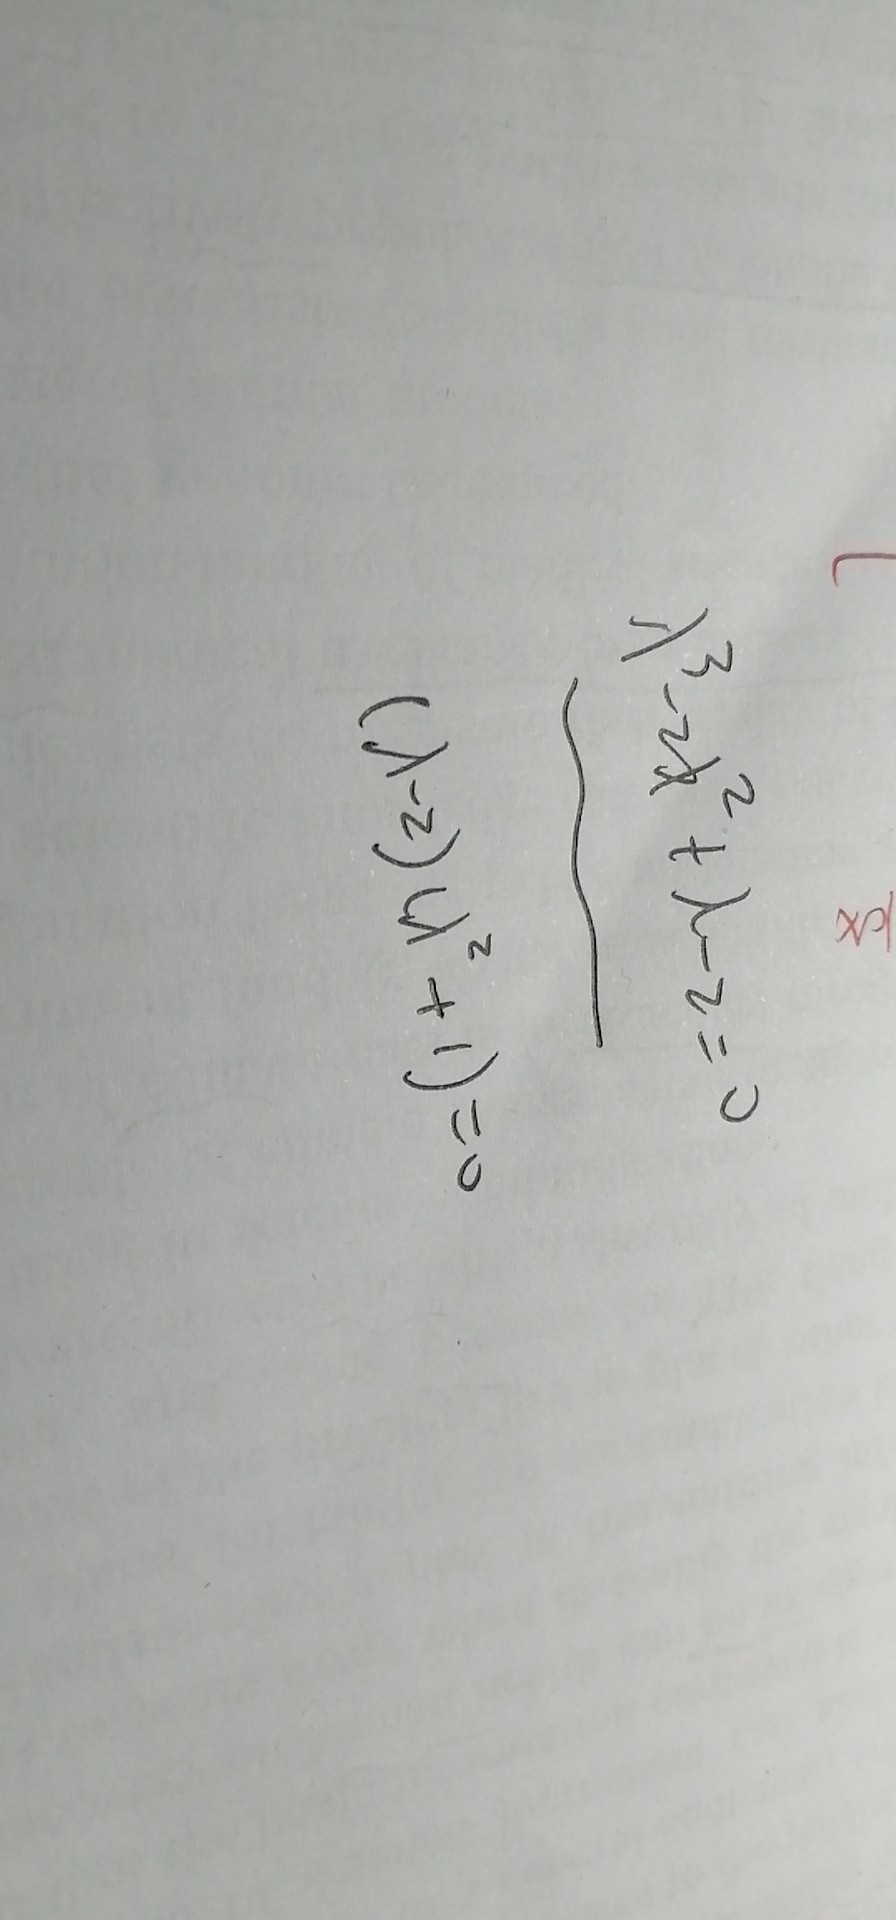 λ³-2λ²+λ-2=0
(λ-2)(λ²+1)=0